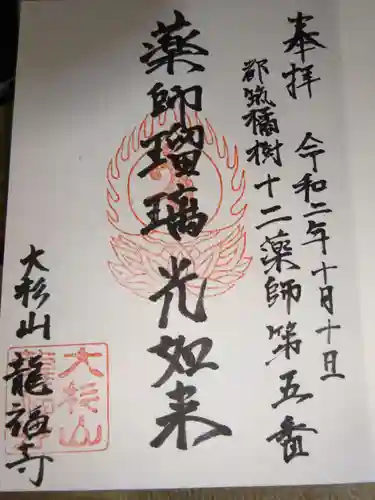 奉拝
令和二年十月十日
都筑橘樹十二薬師第五番
薬師瑠璃光如来
大杉山
龍福寺
大杉山